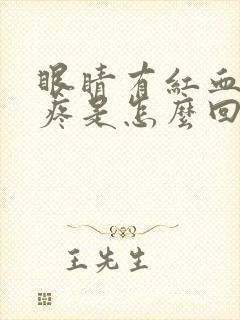 眼睛有紅血
疼是怎麼回
王先生